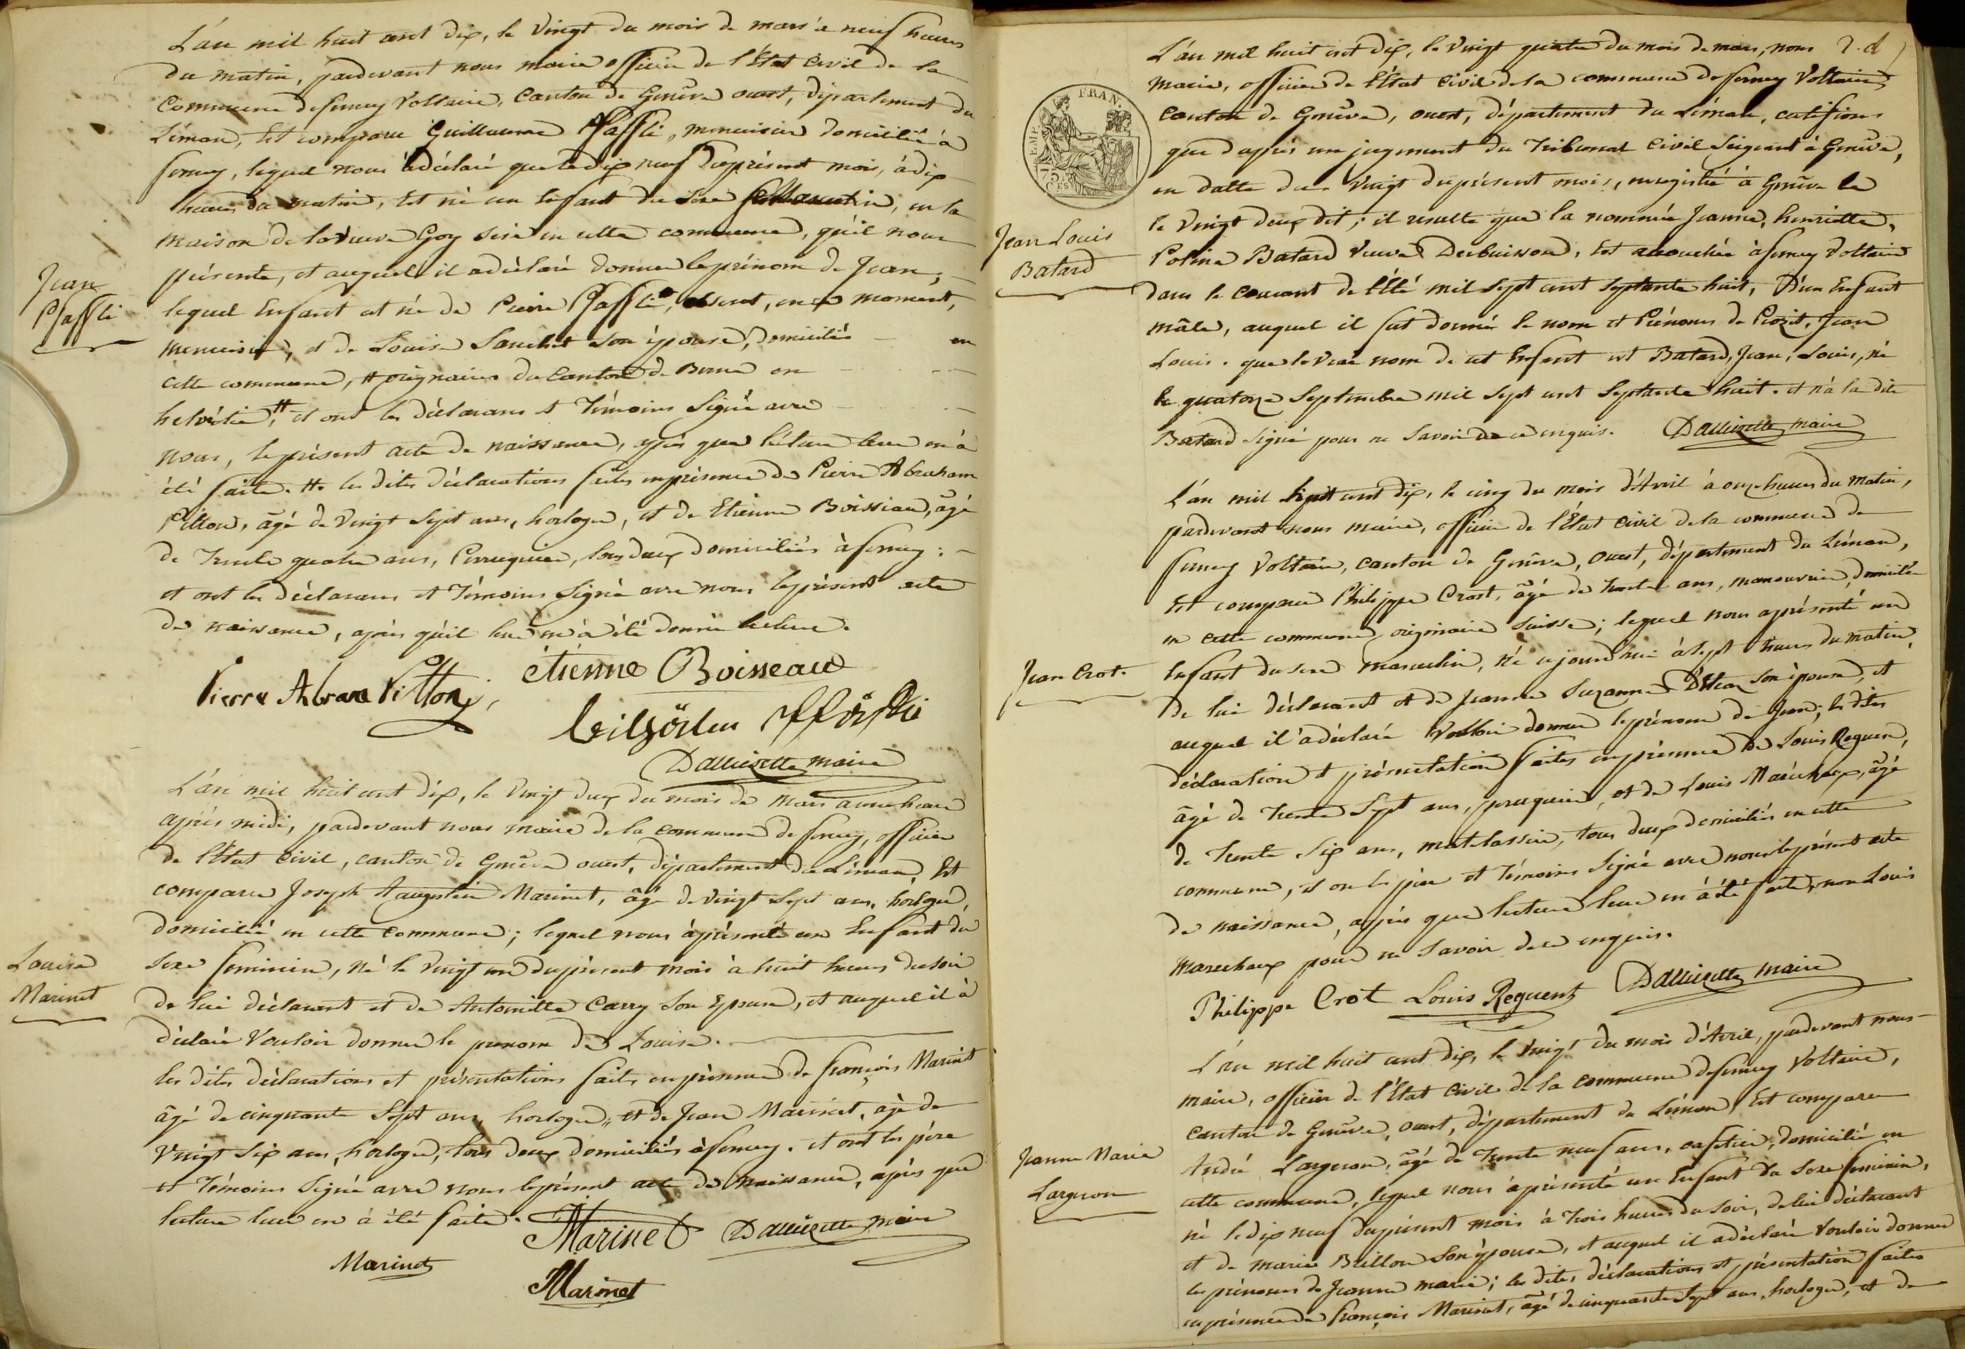 L'an mil huit cent dix, le vingt du mois de mars à neuf heures
du matin, pardevant nous maire officier de l'État Civil de la
Commune de ferney Voltaire, Canton de Genève ouest, département du
Léman, Est comparu Guillaume Pfaffli, menuisier domicilié à
ferney, lequel nous a déclaré que le dix neuf du présent mois, à dix
heures du matin, Est né un Enfant du sexe masculin, en la
maison de la veuve Goy sise en cette commune, qu'il nous
présente, et auquel il a déclaré donner le prénom de Jean,
Jean
Pfaffli
lequel Enfant est né de Pierre Pfaffli, absent, en ce moment,
menuisier, et de Louise son épouse, domiciliés en
cette commune, # originaires du Canton de Berne en
helvétie, # et ont les déclarans et Témoins Signé avec
nous, le présent acte de naissance, après que lecture leur en à
été faite. #. les dites déclarations faites en présence de Pierre Abraham
Pitton, âgé de vingt sept ans, horloger, et de Etienne Boisseau, âgé
de Trente quatre ans, Perruquier, tous deux domiciliés à ferney;
et ont les déclarans et Témoins Signé avec nous le présent acte
de naissance, après qu'il leur en à été donné lecture.
Pierre Abram Pitton étienne Boisseau
Dallizette maire
L'an mil huit cent dix, le vingt deux du mois de mars à une heure
après midi, pardevant nous maire de la Commune de ferney, officier
de l'État Civil, canton de Genève ouest, département du Léman, Est
comparu Joseph Augustin Marinet, âgé de vingt sept ans, horloger,
domicilié en cette Commune; lequel nous à présenté un Enfant du
Louise
Marinet
sexe feminin, né le vingt un du présent mois à huit heures du soir
de lui déclarant et de Antoinette Carry son Epouse, et auquel il à
déclaré Vouloir donner le prenom de Louise.
les dites déclarations et présentations faites en présence de françois Marinet
âgé de cinquante Sept ans, horloger, et de Jean Marinet, âgé de
vingt Six ans, horloger, tous deux domiciliés à ferney. et ont les père
et Témoins Signé avec nous le présent acte de naissance, après que
lecture leur en à été faite.
Marinet Dallizette maire
Marinet
Marinet
L'an mil huit cent dix, le vingt quatre du mois de mars, nous
Maire, officier de l'État Civil de la commune de ferney Voltaire
FRAN.
75
canton de Genève, ouest, département du Léman, certifions
que d'après un jugement du Tribunal Civil Séigeant à Genève,
en datte du vingt du présent mois, enregistré à Genève le
le vingt deux dit; il resulte que la nommée Jeanne, henriette,
Jean Louis
Batard
Poline Batard veuve Desbuisson, Est accouchée à ferney Voltaire
dans le courant de l'Été mil sept cent septante huit, D'un Enfant
mâle, auquel il fut donné le nom et Prénoms de Jean
Louis. que le vrai nom de cet Enfant est Batard, Jean, Louis, né
le quatorze Septembre mil Sept cent Septante huit. et n'a la dite
Batard signé pour ne Savoir de ce enquis. Dallizette maire
L'an mil huit cent dix, le cinq du mois d'Avril à onze heures du matin,
pardevant nous maire, officier de l'État civil de la commune de
ferney Voltaire, canton de Genève, ouest, département du Léman,
Est comparu Philippe Crot, âgé de trente ans, manouvrier, domicilié
en cette commune, originaire Suisse; lequel nous a présenté un
Jean Crot.
Enfant du sexe masculin, né ce jourd'hui à Sept heures du matin,
de lui déclarant et de Jeanne Suzanne son épouse, et
auquel il a déclaré Vouloir donner le prénom de Jean; les dites
déclaration et présentation faites en présence de Louis Reguent,
âgé de Trente Sept ans, perruquier, et de Louis Maréchaux, âgé
de Trente Six ans, matelassier, tous deux domiciliés en cette
commune, et ont les père et Témoins Signé avec nous le présent acte
de naissance, après que lecture leur en à été faite, non Louis
Marechaux pour ne savoir de ce enquis.
Philippe Crot Louis Reguent Dallizette maire
L'an mil huit cent dix, le vingt du mois d'Avril, pardevant nous
maire, officier de l'État Civil de la commune de ferney Voltaire,
canton de Genève, ouest, département du Léman, Est comparu
Jeanne Marie
Largeron
André Largeron, âgé de Trente neuf ans, cafetier, domicilié en
cette commune, lequel nous à présenté un Enfant du Sexe feminin,
né le dix neuf du présent mois à Trois heures du Soir, de lui déclarant
et de marie Brillon son épouse, et auquel il a déclaré Vouloir donner
les prénoms de Jeanne marie; les dites déclarations et présentation faites
en présence de françois Marinet, âgé de cinquante Sept ans, horloger, et de